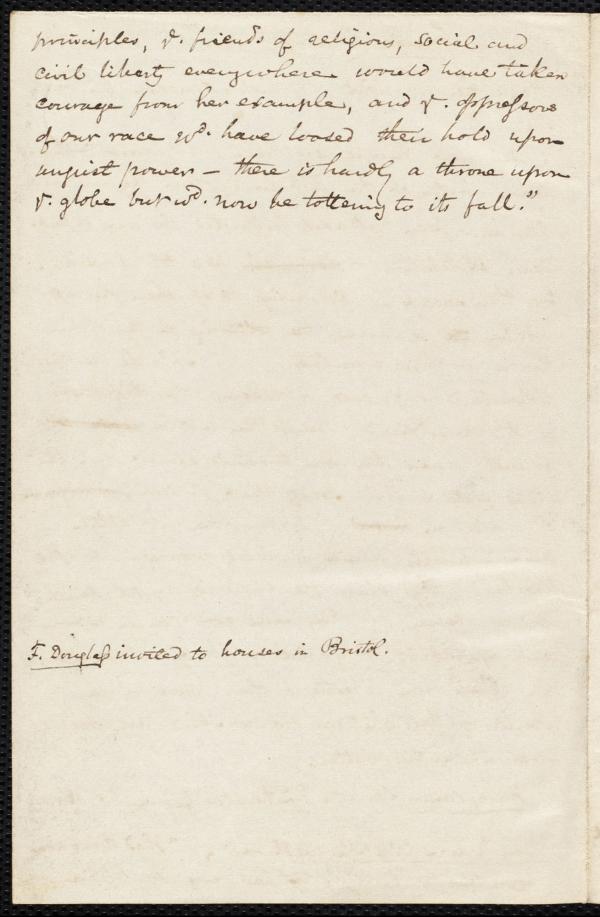 principles, & friends of religious, social and
civil liberty everywhere would have taken
courage from her example, and ye. oppressors
of our race wd. have loosed their hold upon
unjust power — there is hardly a throne upon
ye. globe but wd. now be tottering to its fall."
F. Douglass invited to houses in Bristol.